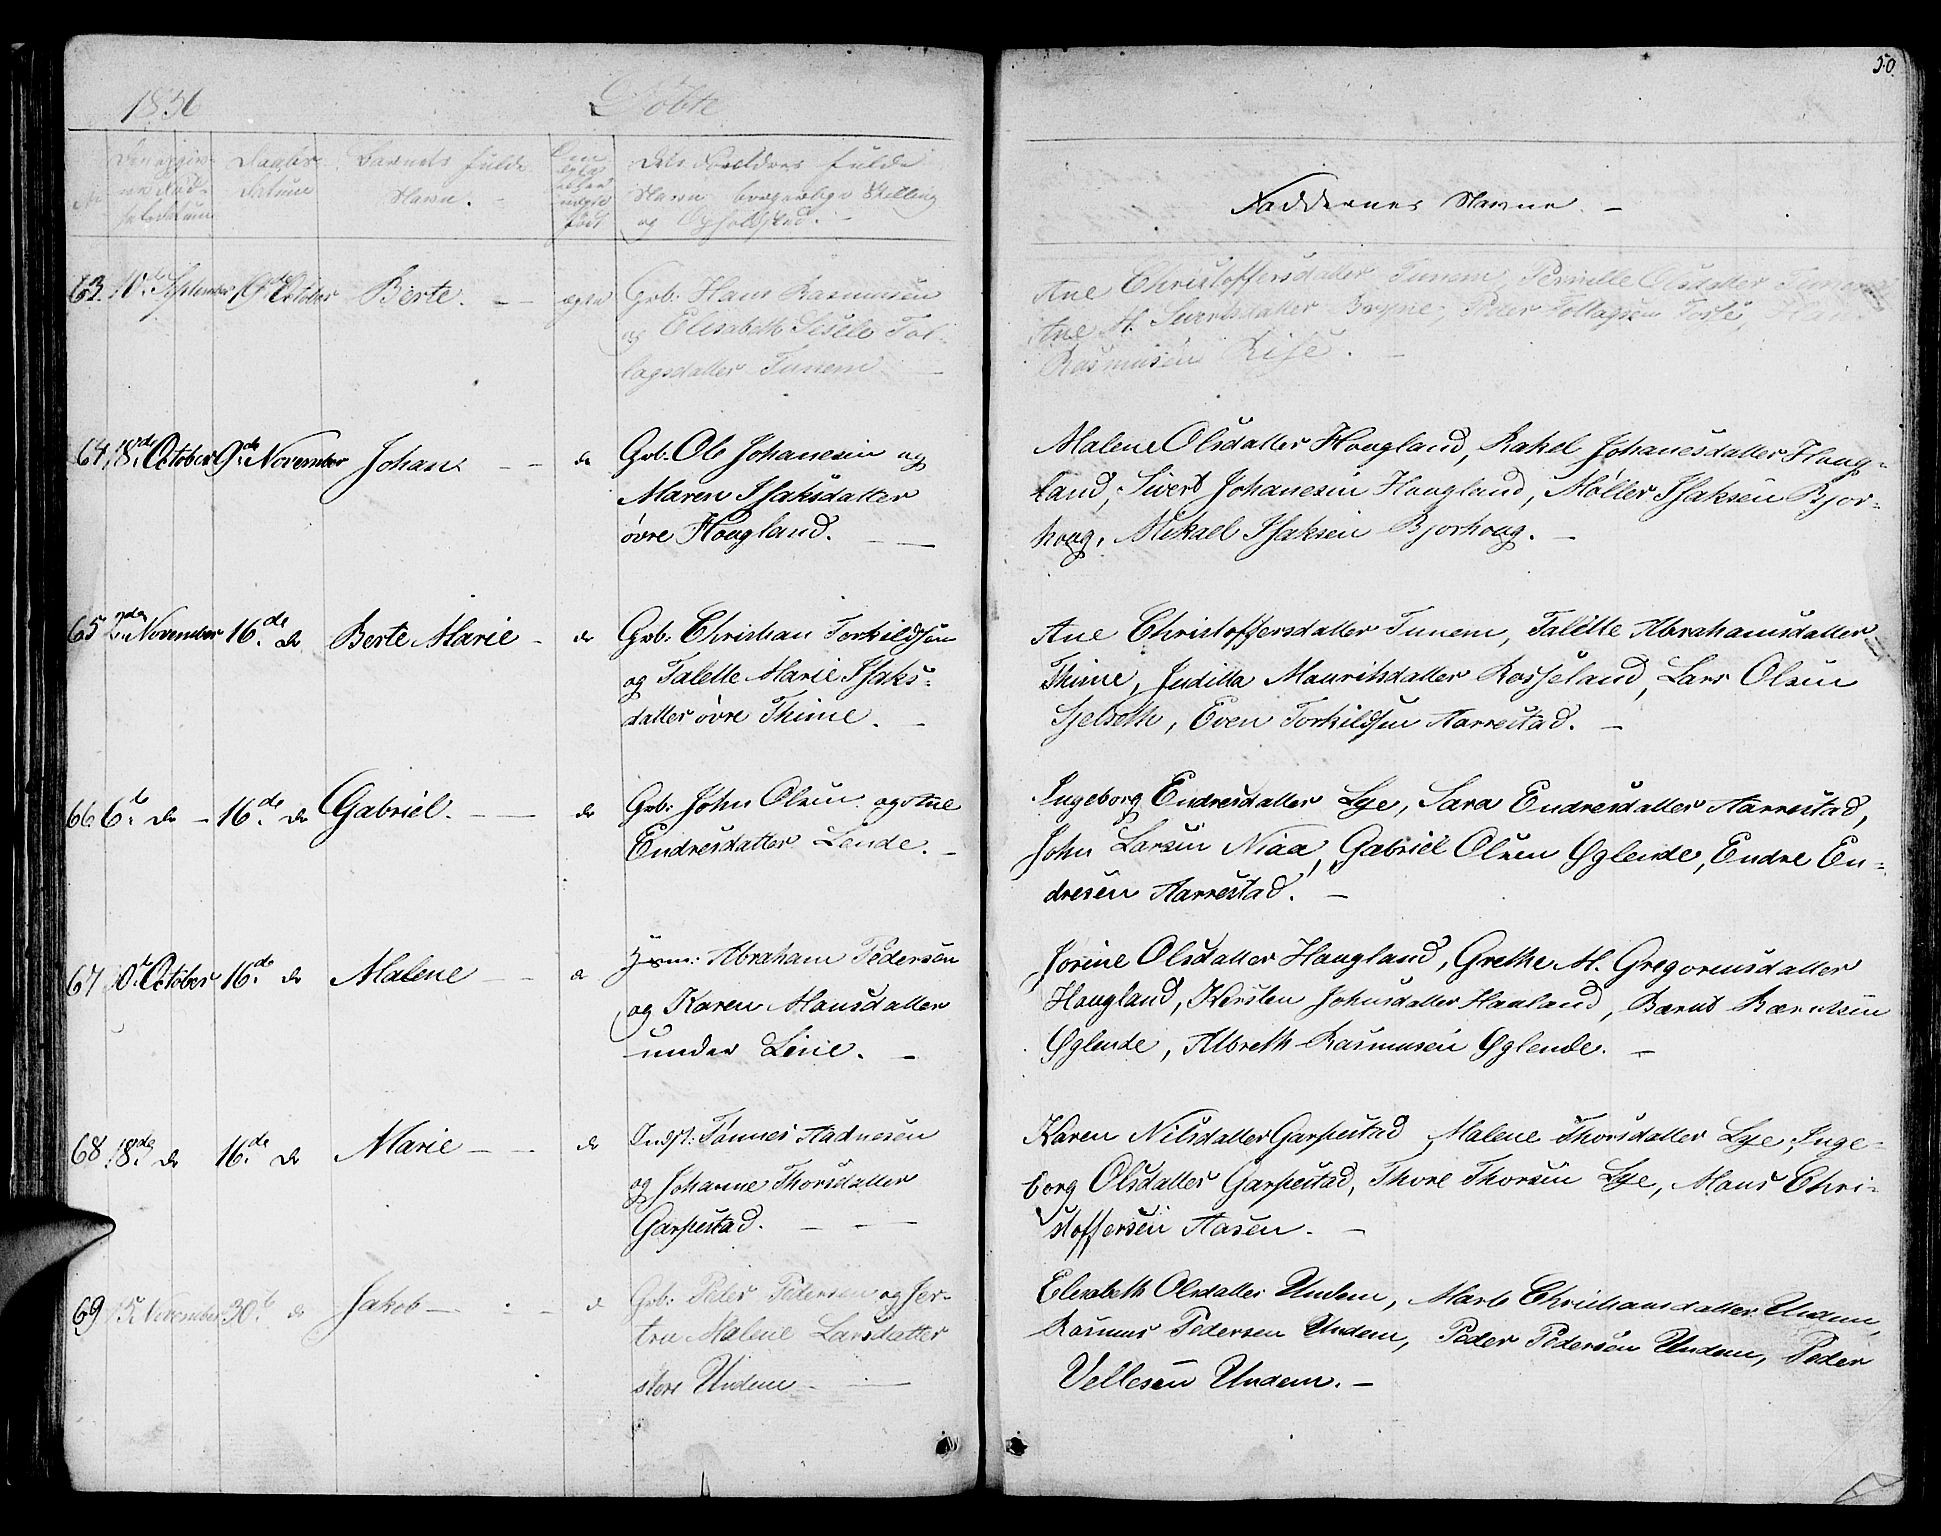 50
1856 Döbte
Den opgiv- Daabs- Barnets fulde Om Deres Forældres fulde
ne Fød- datum Navn. - Navn, borgerlige Stilling
selsdatum født og Opholdsted. -
Faddernes Navne. -
63. 10de September 19de October Berte. - - ægte Grb: Hans Rasmusen
og Elisabeth Sisele Tol-
lagsdatter Tunem -
Ane Christoffersdatter Tunem, Pernille Olsdatter Tunem
Ane M. Sivertsdatter Bryne, Peder Tollagsen Fosse, Hans
Rasmusen Rise. -
64. 18de October 9de November Johan. - - do Grb. Ole Johanesen og
Maren Isaksdatter
övre Hougland. - -
Malene Olsdatter Hougland, Rakel Johanesdatter Houg-
land, Sivert Johanesen Hougland, Møller Isaksen Bjor-
houg, Mikael Isaksen Bjorhoug. -
65 2nde November 16de do Berte Marie - do Grb. Christian Torkildsen
og Talette Marie Isaks-
datter övre Thime. -
Ane Christoffersdatter Tunem, Talette Abrahamsdatter
Thime, Juditta Mauritsdatter Rosseland, Lars Olsen
Sjelseth, Even Torkildsen Aarrestad. -
66. 6te do - 16de do Gabriel. - - do Grb: John Olsen og Ane
Endresdatter Lende. -
Ingeborg Endresdatter Lye, Sara Endresdatter Aarrestad,
John Larsen Niaa, Gabriel Olsen Øglende, Endre En-
dresen Aarrestad. -
67 October 16de do Malene - - Hsm: Abraham Pedersen
og Karen Mausdatter
under Line. -
Jorine Olsdatter Hougland, Grethe M. Gregoriusdatter
Hougland, Kirsten Johnsdatter Haaland, Bærnt Bærntsen
Øglende, Albreth Rasmusen Øglende. -
68 18de do 16de do Marie - - do Indst: Tønnes Aadnesen
og Johanne Thorsdatter
Garpestad. - -
Karen Nilsdatter Garpestad, Malene Thorsdatter Lye, Inge-
borg Olsdatter Garpestad, Thore Thorsen Lye, Maus Chri-
stoffersen Aasen. -
69 15 November 30te do Jakob - - d Grb: Peder Pedersen og Jer-
tru Malene Larsdatter
store Undem - -
Elisabeth Olsdatter Undem, Marte Christiansdatter Undem,
Rasmus Pedersen Undem, Peder Pedersen Undem, Peder
Vellesen Undem. -